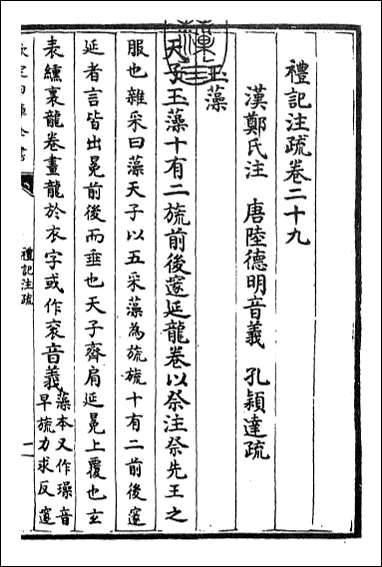 禮記注疏卷二十九
漢鄭氏注　唐陸德明音義　孔穎達疏
玉藻
天子玉藻十有二旒前後邃延龍卷以祭注祭先王之
服也雜采曰藻天子以五采藻為旒旒十有二前後邃
延者言皆出冕前後而垂也天子齊肩延冕上覆也玄
表纁裏龍卷畫龍於衣字或作衮音義藻本又作璪音
早旒力求反邃
禮記注疏
一